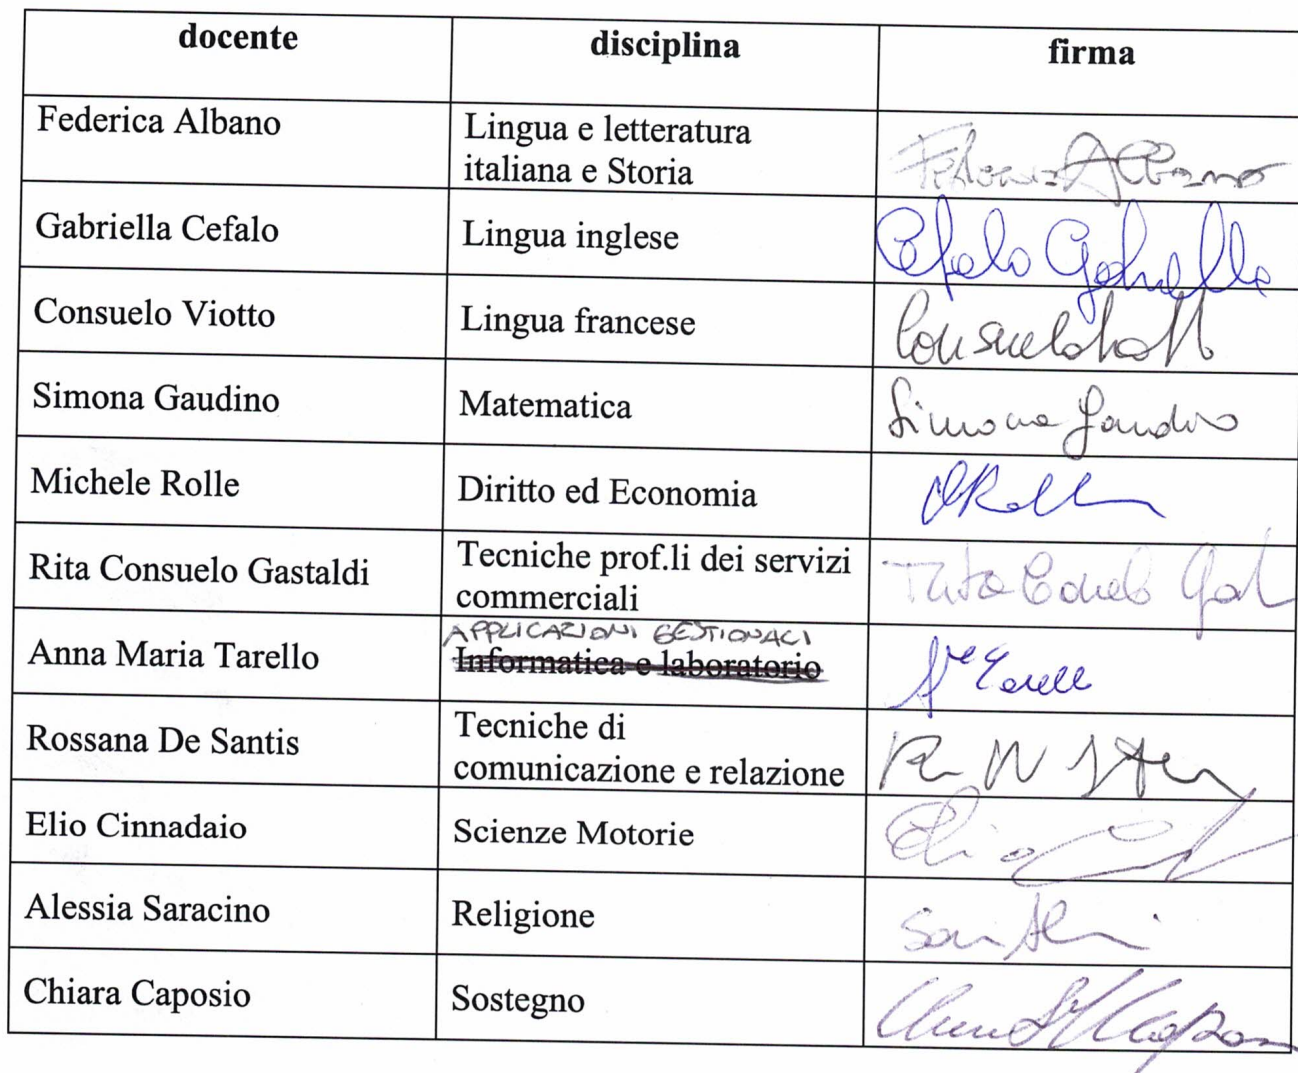 docente disciplina firma
Federica Albano Lingua e letteratura
italiana e Storia Federica Albano
Gabriella Cefalo Lingua inglese Cefalo Gabriella
Consuelo Viotto Lingua francese Consuelo
Simona Gaudino Matematica Simona Gaudino
Michele Rolle Diritto ed Economia
Rita Consuelo Gastaldi Tecniche prof.li dei servizi
commerciali
APPLICAZIONI GESTIONALI
Anna Maria Tarello Informatica e laboratorio
Rossana De Santis Tecniche di
comunicazione e relazione
Elio Cinnadaio Scienze Motorie Elio
Alessia Saracino Religione
Chiara Caposio Sostegno